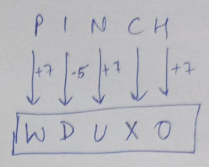 P I N C H
+7 -5 +7 +7
W D U X O